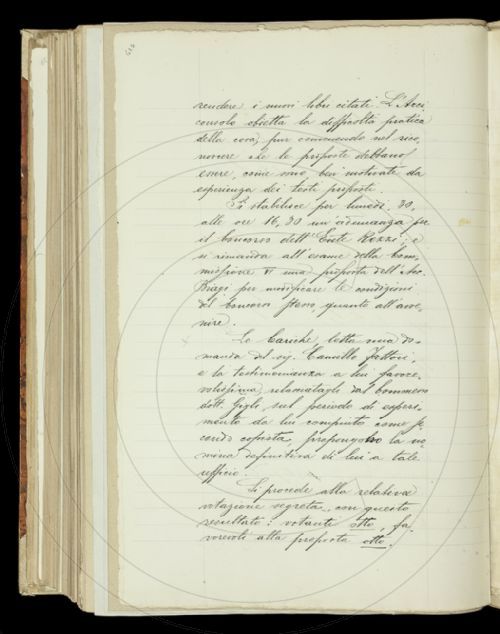 rendere i nuovi libri citati. L'Arci-
consolo obietta la difficoltà pratica
della cosa, pur convenendo nel rico-
noscere che le proposte debbano
essere, come sono, ben motivate da
esperienza dei testi proposti.
Si stabilisce per lunedì, 30,
alle ore 16,30 un'adunanza per
il Concorso dell'Ente Rezzi; e
si rimanda all'esame della Com-
missione una proposta dell'Acc.
per modificare le condizioni
del Concorso stesso, quanto all'avve-
nire.
Le Cariche, letta una do-
manda del sig. Camillo Fattori,
e la testimonianza a lui favore-
volissima, rilasciatagli dal Commesso
dott. Gigli, sul periodo di esperi-
mento da lui compiuto come se-
condo copista, propongono la no-
mina definitiva di lui a tale
ufficio.
Si procede alla relativa
votazione segreta, con questo
resultato: votanti otto, fa-
vorevoli alla proposta otto.